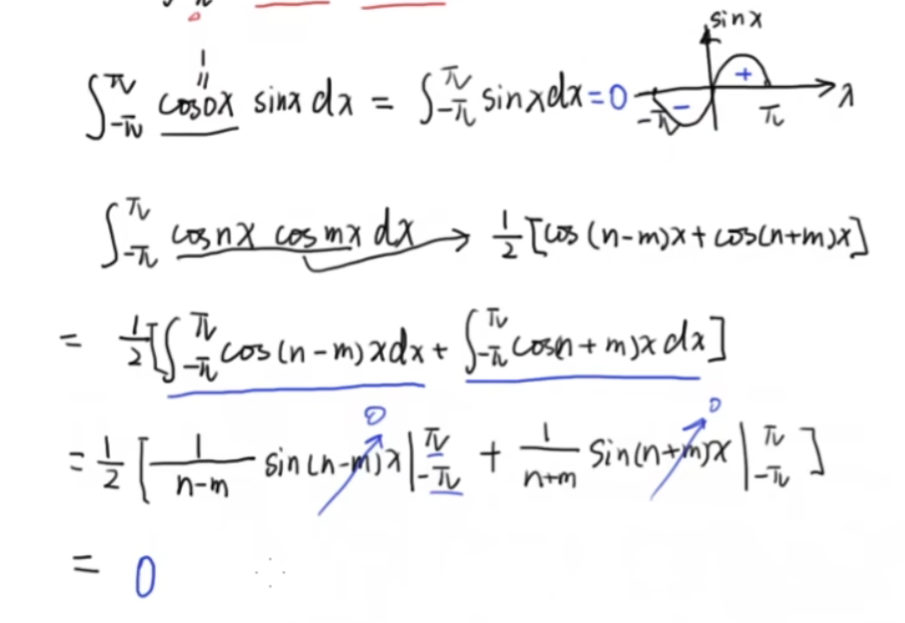 1
||
∫_{-π}^{π} cos0x sinx dx = ∫_{-π}^{π} sinx dx = 0
sinx
+
-
-π π x
∫_{-π}^{π} cosnx cosmx dx → 1/2 [cos (n-m)x + cos(n+m)x]
= 1/2 [∫_{-π}^{π} cos (n-m)x dx + ∫_{-π}^{π} cos(n+m)x dx]
0 0
= 1/2 [ 1/(n-m) sin(n-m)x |_{-π}^{π} + 1/(n+m) sin(n+m)x |_{-π}^{π} ]
= 0